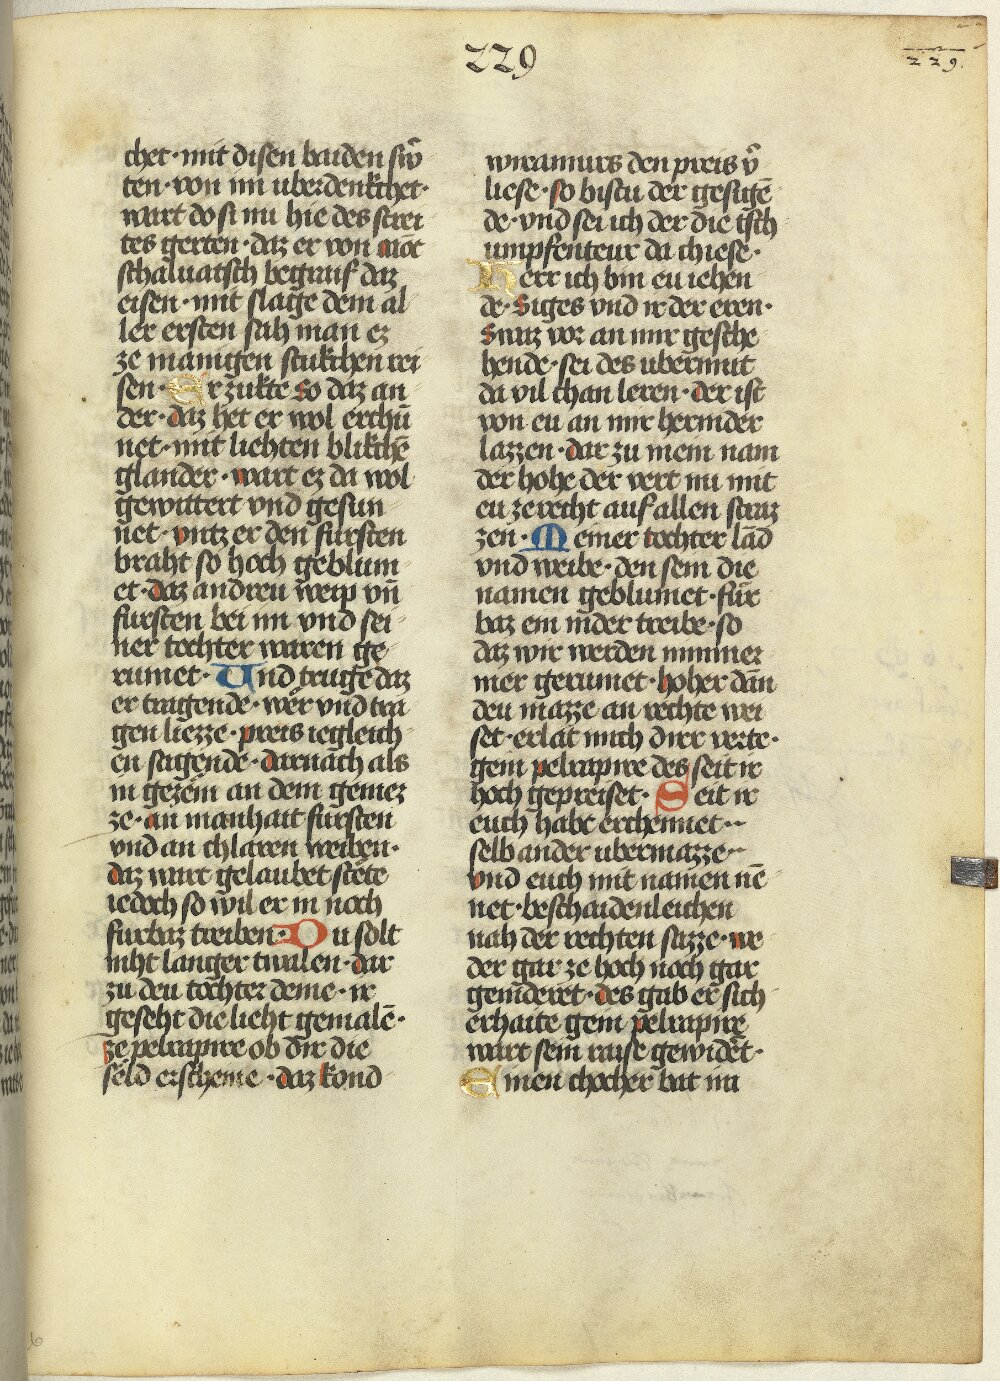 229
229.
chet·mit disen baiden sw̄
ten·von im uberdenkchet·
wart do si nu hie des strei
tes gerten·daz er von mot
schaluatsch begraif daz
eisen·mit slage dem al
ler ersten sah man ez
ze manigen stukchen rei
sen·Er zukte so daz an
der·daz het er wol erchū
net·mit liehten blikchē
glander·wart ez da wol
gewittert vnd gesun
net·vntz er den fursten
braht so hoch geblum
et·daz andreu weip vn̄
fursten bei im vnd sei
ner tochter waren ge
rumet·Und truge daz
er tragende·wer vnd tra
gen liezze·preis iegleich
en sagende·darnach als
in gezem an dem gemez
ze·an manhait fursten
vnd an chlaren weiben·
daz wart gelaubet stete
iedoch so wil er in noch
furbaz treiben·Du solt
niht langer twalen·dar
zu deu tochter deine·ir
geseht die lieht gemalē·
ze pelrapeire ob dir die
seld erscheine·daz kond
wiramurs den preis v̄
liese·so bistu der gesigē
de·vnd sei ich der die tsch
umpfenteur da chiese·
Herr ich bin eu iehen
de·Siges vnd ir der eren·
Swaz vor an mir gesche
hende·sei des ubermut
da vil chan leren·der ist
von eu an mir hernider
lazzen·dar zu mein nam
der hohe der vert nu mit
eu ze recht auf allen straz
zen·Meiner tochter lād
vnd weibe·den sein die
namen geblumet·fur
baz ein nider treibe·so
daz wir werden nimmer
mer gerumet·hoher dān
deu mazze an rechte wei
set·erlat mich dirr verte·
gein pelrapire des seit ir
hoch gepreiset·Seit ir
euch habt erchennet··
selb ander ubermazze··
vnd euch mit namen nē
net·beschaidenleichen
nah der rechten sazze·we
der gar ze hoch noch gar
genideret·des gab er sich
erhaite gein pelrapire
wart sein raise gewidet·
Einen chocher bat im